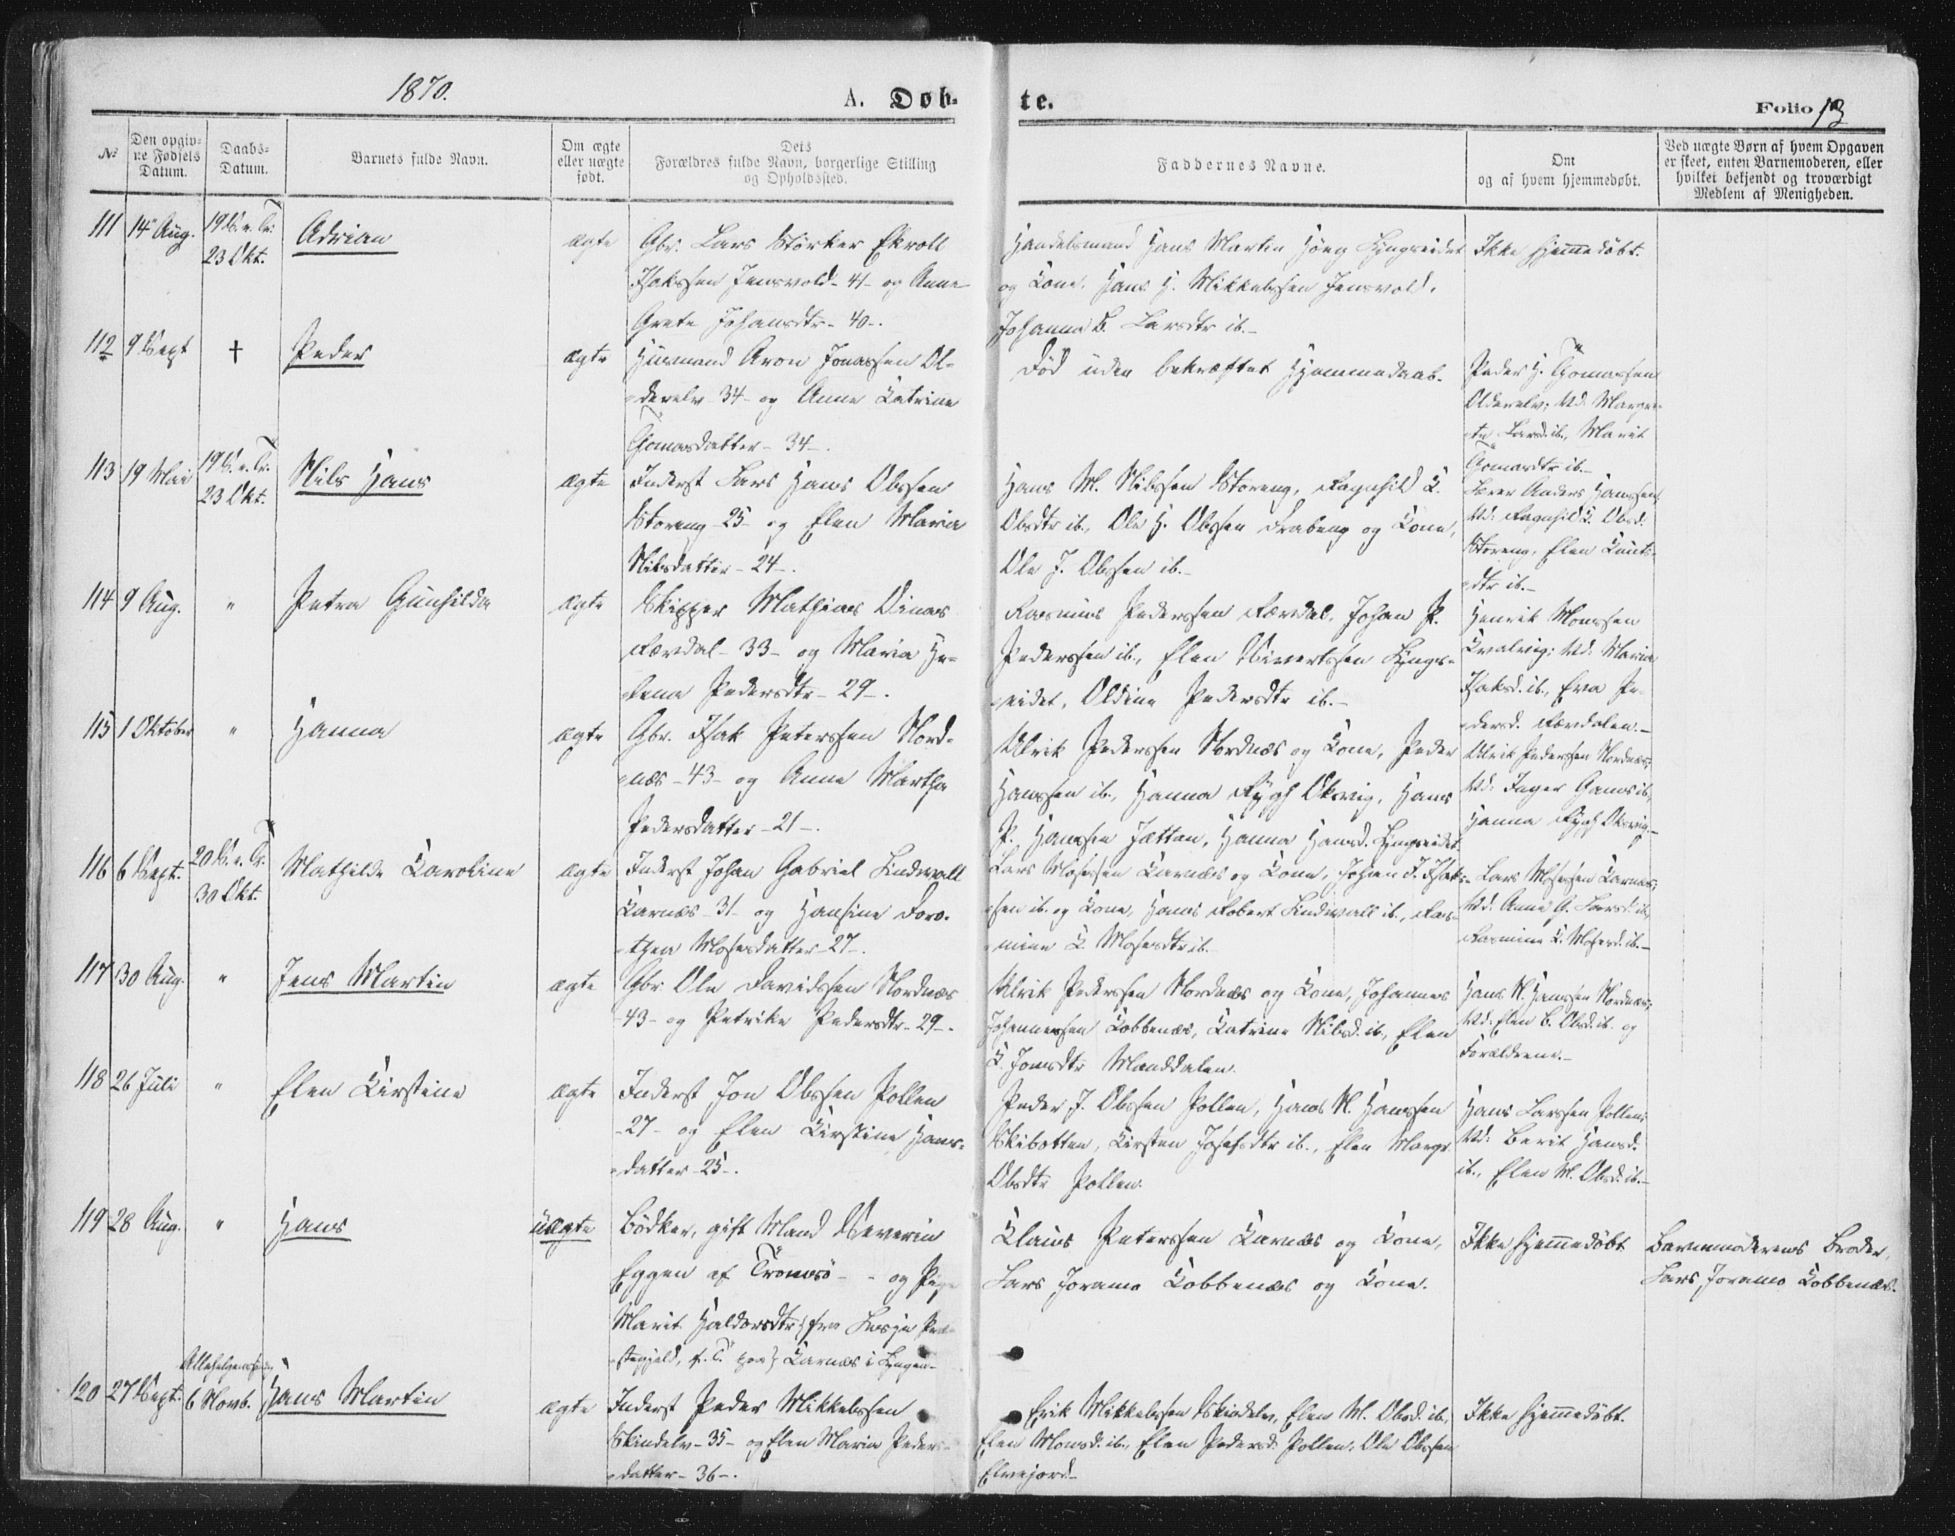 1870.
A. Døb-
te.
Folio 13
№
Den opgiv-
ne Fødsels
Datum.
Daabs-
Datum.
Barnets fulde Navn.
Om ægte
eller uægte
født.
Dets
Forældres fulde Navn, borgerlige Stilling
og Opholdssted.
Faddernes Navne.
Om
og af hvem hjemmedøbt.
Ved uægte Børn af hvem Opgaven
er skeet, enten Barnemoderen, eller
hvilket bekjendt og troværdigt
Medlem af Menigheden.
111 14 Aug. 19 S. e. Tr.
23 Okt.
Adrian
ægte
Gbr. Lars Størker Ekroll
Isakssen Jensvold - 41 - og Anne
Grete Johansdtr - 40 -.
Handelsmand Hans Martin Høeg Lyngseidet
og Kone, Hans H. Mikkelssen Jensvold,
Johanna B. Larsdtr ib. -
Ikke hjemmedøbt.
112 9 Sept † Peder
ægte
Husmand Aron Jonassen Ol-
derelv - 34 - og Anne Katrine
Thomasdatter - 34 -.
Død uden bekræftet Hjemmedaab.
Peder H. Thomassen
Olderelv; Vd: Margre-
te Larsd. ib., Marit
Thomasdtr ib. -
113 19 Mai 19 S. e. Tr.
23 Okt.
Nils Hans
ægte
Inderst Lars Hans Olssen
Storeng - 25 - og Elen Maria
Nilsdatter - 24 -.
Hans M. Nilssen Storeng, Ragnhild K.
Olsdtr ib., Ole H. Olssen Drabeng og Kone,
Ole J. Olssen ib. -
Lærer Anders Hanssen
Vd: Ragnhild K. Olsd.
Storeng, Elen Knuts-
dtr ib. -
114 9 Aug. " Petra Gunhilda
ægte
Skipper Mathias Dinas
Rævdal - 33 - og Maria He-
lena Pedersdtr - 29 -.
Rasmus Pederssen Rævdal, Johan P.
Pederssen ib., Elen Sivertssen Lyngs-
eidet, Oldine Pedersdtr ib. -
Henrik Monssen
Kvalvig; Vd: Maria
Isaksd. ib., Eva Pe-
dersd. Rævdalen. -
115 1 Oktober " Hanna
ægte
Gbr. Isak Peterssen Nord-
næs - 43 - og Anne Martha
Pedersdatter - 21 -.
Ulrik Pederssen Nordnæs og Kone, Peder
Hanssen ib., Hanna Rygh Oksvig, Hans
P. Hanssen Jættan, Hanna Hansd. Lyngseidet
Ulrik Pederssen Nordnæs;
Vd: Inger Hans ib.,
Hanna Rygh Oksvig -
116 6 Sept. 20 S. e. Tr.
30 Okt.
Mathilde Karoline
ægte
Inderst Johan Gabriel Lindvall
Karnæs - 31 - og Hansine Doro-
thea Mosesdatter - 27 -.
Lars Mosessen Karnæs og Kone, Johan I. Isaks-
sen ib. og Kone, Hans Robert Lindvall ib., Ras-
mine K. Mosesdtr ib.
Lars Mosessen Karnæs;
Vd: Anne G. Larsd. ib.,
Rasmine K. Mosesd. ib. -
117 30 Aug. " Jens Martin
ægte
Gbr Ole Davidssen Nordnæs
- 43 - og Petrike Pedersdtr - 29 -.
Ulrik Pederssen Nordnæs og Kone, Johannes
Johannessen Kobbenæs, Katrine Nilsd. ib., Elen
K. Jonsdtr Manddalen.
Hans N. Hanssen Nordnæs;
Vd: Elen B. Olsd. ib. og
Forældrene. -
118 26 Juli " Elen Kirstine
ægte
Inderst Jon Olssen Pollen
- 27 - og Elen Kirstine Hans-
datter - 25 -.
Peder J. Olssen Pollen, Hans N. Hanssen
Skibotten, Kirsten Josefsdtr ib., Elen Margr.
Olsdtr Pollen.
Hans Larssen Pollen;
Vd: Berit Hansd.
ib., Elen M. Olsd. ib. -
119 28 Aug. " Hans
uægte
Bødker, gift Mand Severin
Eggen af Tromsø - - og Pige
Marit Haldorsdtr fra Lesje Præ-
stegjeld, f. T. paa Karnæs i Lyngen -
Klaus Peterssen Karnæs og Kone,
Lars Joramo Kobbenæs og Kone.
Ikke hjemmedøbt
Barnmoderens Broder,
Lars Joramo Kobbenæs.
120 27 Sept. Allehelgensd.
6 Novb.
Hans Martin
ægte
Inderst Peder Mikkelssen
Skindelv - 35 - og Elen Maria Peders-
datter - 36 -.
Erik Mikkelssen Skindelv, Elen M. Olsd. ib.,
Elen Monsd. ib., Elen Pedersd. Pollen, Ole Olssen
Elvejord -
Ikke hjemmedøbt.